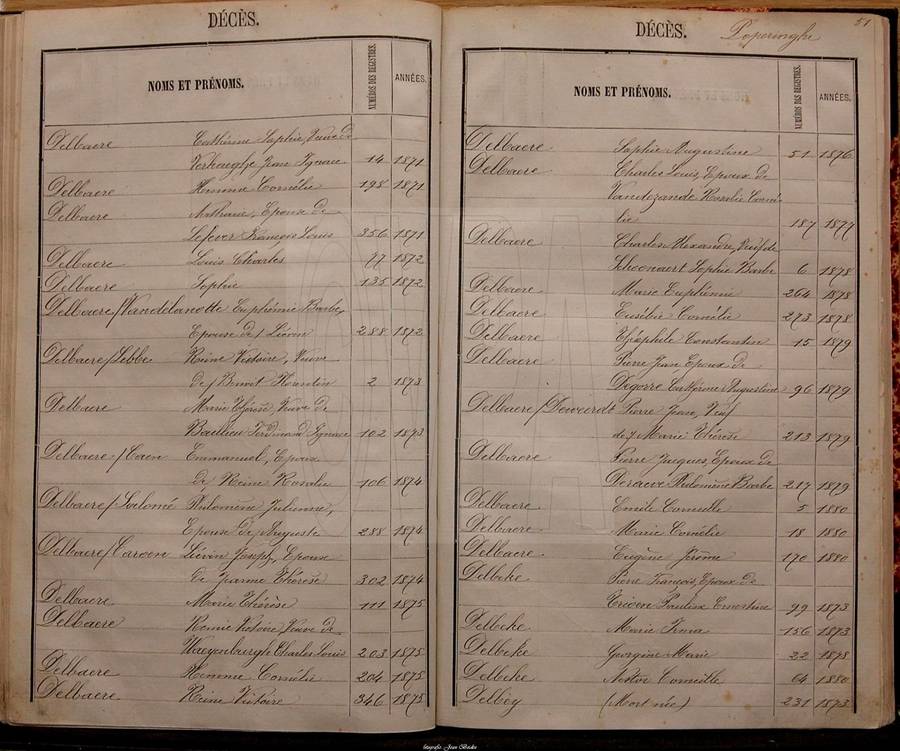 DÉCÈS.
NOMS ET PRÉNOMS. NUMÉROS DES REGISTRES. ANNÉES.
Delbaere Cathérine Sophie, Veuve de
Verhaeghe Jean Ignace 14 1871
Delbaere Hemma Cornélie 198 1871
Delbaere Nathalie, Epouse de
Lefever François Louis 356 1871
Delbaere Louis Charles 77 1872
Delbaere Sophie 135 1872
Delbaere/Vandelanotte Euphémie Barbe,
Epouse de / Liévin 288 1872
Delbaere/Lebbe Reine Victoire, Veuve
de / Benoit Florentin 2 1873
Delbaere Marie Thérèse, Veuve de
Baellieu Ferdinand Ignace 102 1873
Delbaere/Caen Emmanuel, Epoux
de Reine Rosalie 106 1874
Delbaere/Salomé Philomène Julienne,
Epouse de Auguste 288 1874
Delbaere/Caroen Liévin Joseph, Epoux
de Jeanne Thérèse 302 1874
Delbaere Marie Thérèse 111 1875
Delbaere Victoire, Veuve de
Waeyenburgh Charles Louis 203 1875
Delbaere Hemme Cornélie 204 1875
Delbaere Reine Victoire 346 1875
DÉCÈS. Poperinghe 51
NOMS ET PRÉNOMS. NUMÉROS DES REGISTRES. ANNÉES.
Delbaere Sophie Augustine 51 1876
Delbaere Charles Louis, Epoux de
Vandezande Rosalie Corné-
lie 187 1877
Delbaere Charles Alexandre, Veuf de
Schoonaert Sophie Barbe 6 1878
Delbaere Marie Euphémie 264 1878
Delbaere Eusélie Cornélie 273 1878
Delbaere Théophile Constantin 15 1879
Delbaere Pierre Jean Epoux de
Degorre Cathérine Augustine 96 1879
Delbaere/Deweerdt Pierre Jean, Veuf
de / Marie Thérèse 213 1879
Delbaere Pierre Jacques, Epoux de
Deraeve Philomène Barbe 217 1879
Delbaere Emile Camille 5 1880
Delbaere Marie Cornélie 18 1880
Delbaere Eugène Jérôme 170 1880
Delbeke Pierre François, Epoux de
Pauline Ernestine 99 1873
Delbeke Marie Irma 156 1873
Delbeke Georgine Marie 22 1878
Delbeke Nestor Corneille 64 1880
Delbey (Mort née) 231 1873
fotografie Jean Beckx